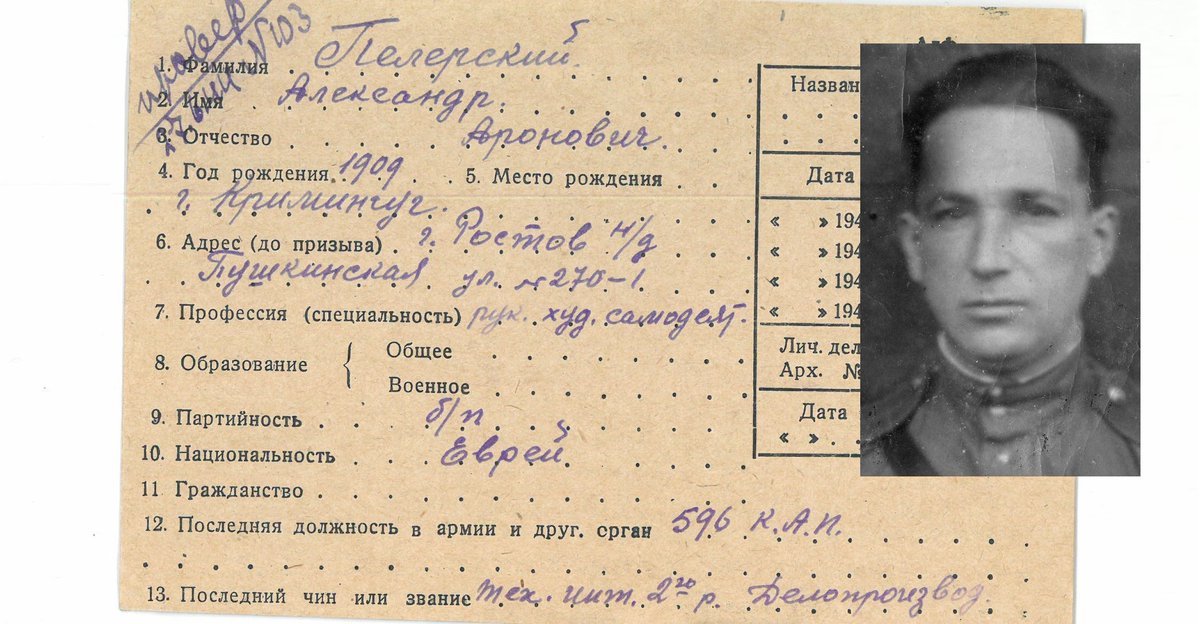 провер
№103
1. Фамилия Пелерский
2. Имя Александр.
3. Отчество Аронович.
4. Год рождения 1909 5. Место рождения
г. Криминчуг.
6. Адрес (до призыва) г. Ростов н/д
Пушкинская ул. № 270-1
7. Профессия (специальность) рук. худ. самодеят.
8. Образование { Общее
Военное
9. Партийность б/п
10. Национальность Еврей
11. Гражданство
12. Последняя должность в армии и друг. орган 596 К.А.П.
13. Последний чин или звание тех. инт. 2го р. Делопроизвод.
Назван
Дата
« » 194
« » 194
« » 194
« » 194
Лич. дел
Арх. №
Дата
« »